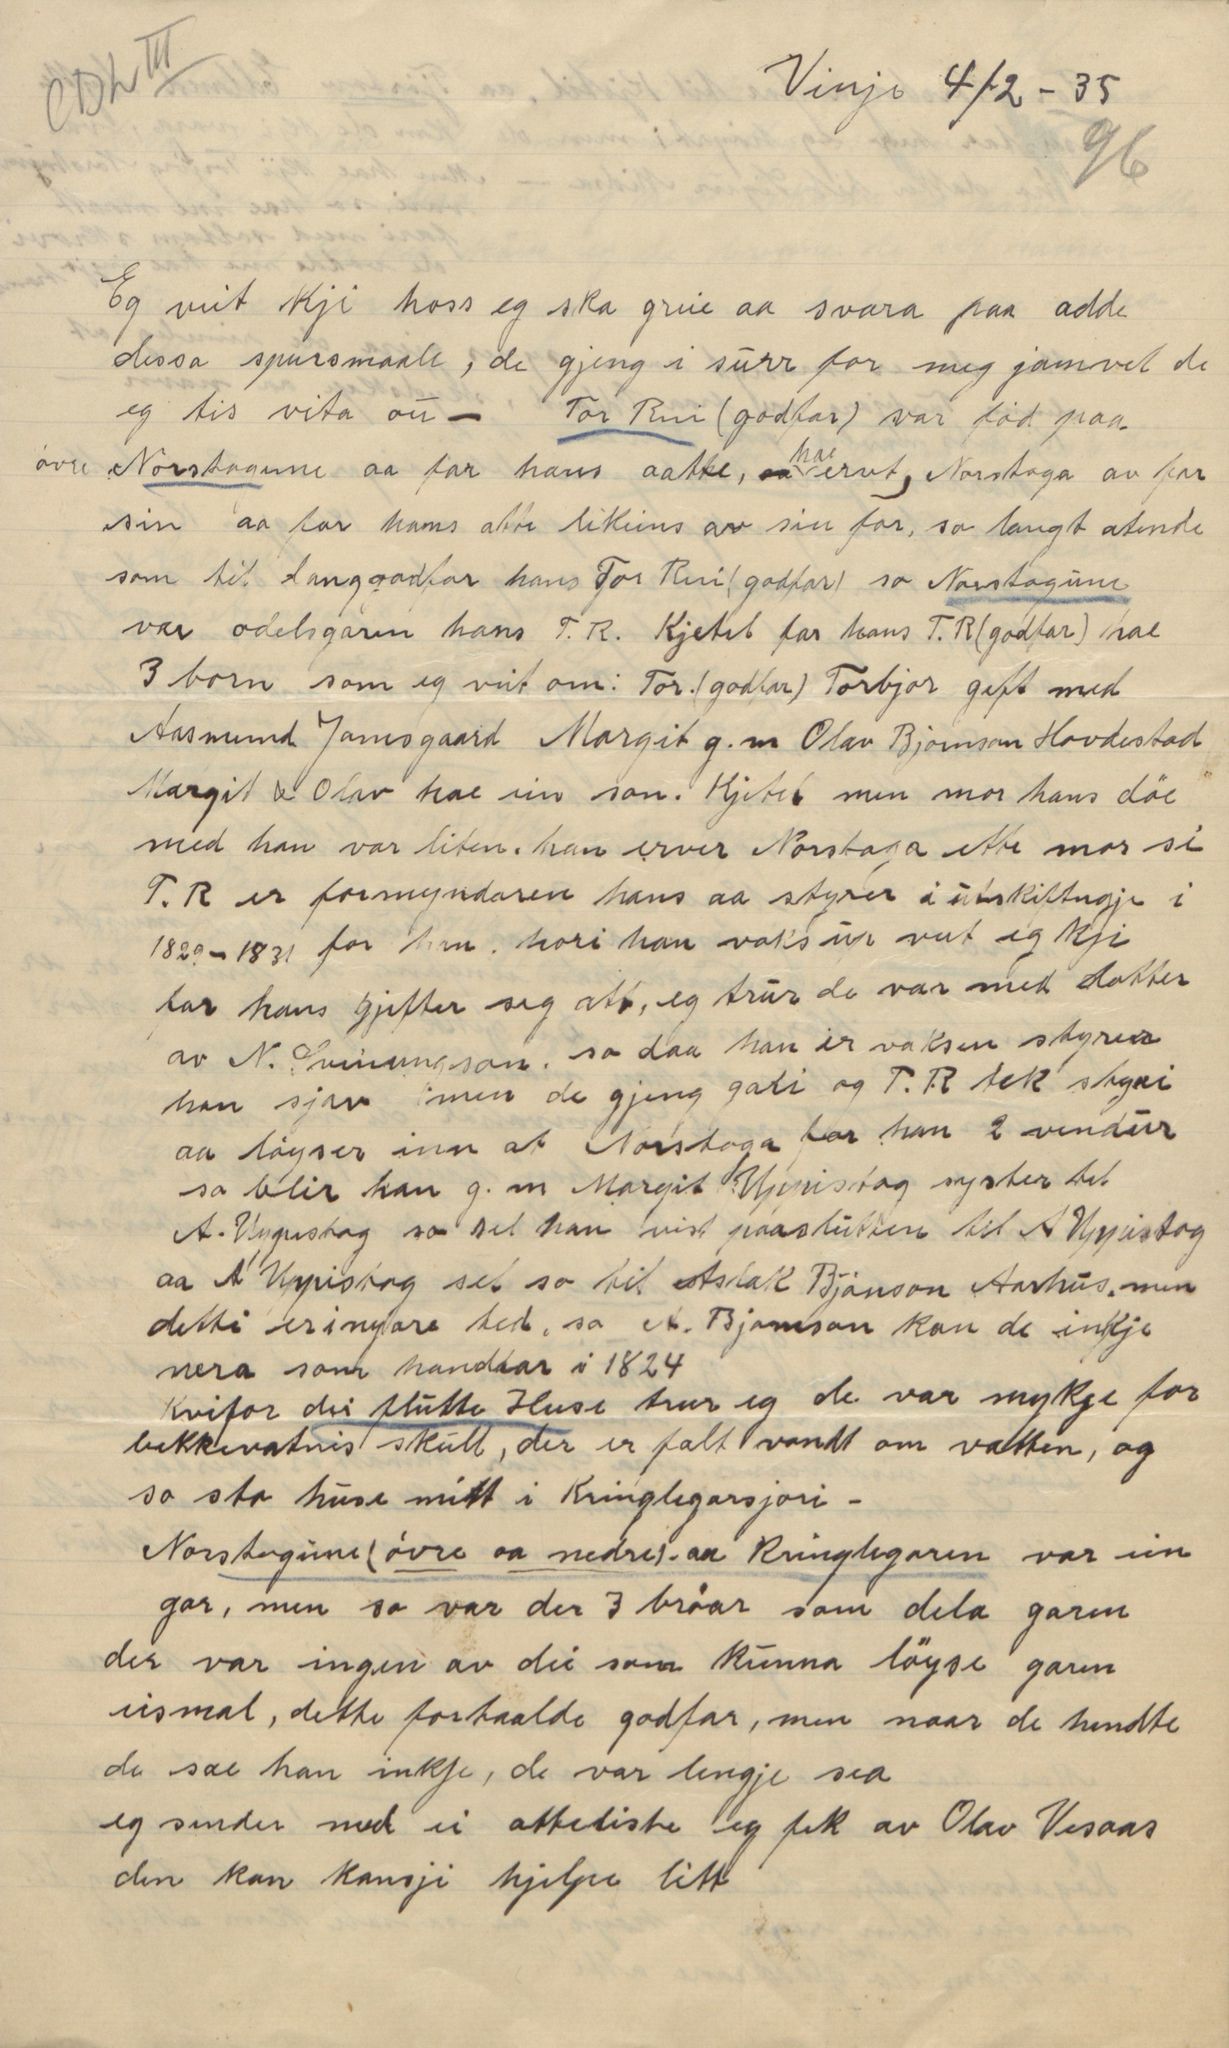 CDL III
Vinje 4/2 - 35
96
Eg veit kji hoss eg ska greie aa svara paa adde
dessa spursmaali, de gjeng i surr for meg jamvel de
eg tis vita ou — Tor Rui (godfar) var fød paa
øvre Norstogune aa far hans aatte, hae ervt, Norstoga av far
sin aa far hans atte likeins av sin far, so langt atende
som til langgodfar hans Tor Rui (godfar) so Norstogune
var odelsgaren hans T. R. Kjetel far hans T.R (godfar) hae
3 born som eg veit om: Tor. (godfar) Torbjør geft med
Aasmund Jamsgaard Margit g. m Olav Bjørnson Hovdestad
Margit & Olav hae ein son. Kjetel men mor hans døe
med han var liten. han erver Norstoga ette mor si
T. R er formyndaren hans aa styrer i utskiftugje i
1829 - 1831 for han. hori han voks up veit eg kji
far hans gjifter seg att, eg trur de var med dotter
av N. Sveinungson. so daa han er vaksen styrer
han sjøv men de gjeng gali og T. R tek styri
aa løyser inn at Norstoga for han 2 vendur
so blir han g. m Margit Uppistog syster tel
A. Uppistog so sel han vist paaslutten til A Uppistog
aa A Uppistog sel so til Aslak Bjønson Aarhus. men
detti er ingare ted. so A. Bjørnson kan de inkje
vera som handlar i 1824
Kvifor dei flutte Huse trur eg de var mykje for
bekkevatnis skull, der er falt vondt om vatten, og
so sto huse mitt i Kringlegarsjori -
Norstogune (øvre aa nedre). aa Kringlegaren var ein
gar, men so var der 3 brøar som dela garen
der var ingen av dei som kunna løyse garen
eismal, dette fortaalde godfar, men naar de hendte
de sae han inkje, de var lengje sea
eg sender med ei atteliste eg fek av Olav Vesaas
den kan kansji hjelpe litt